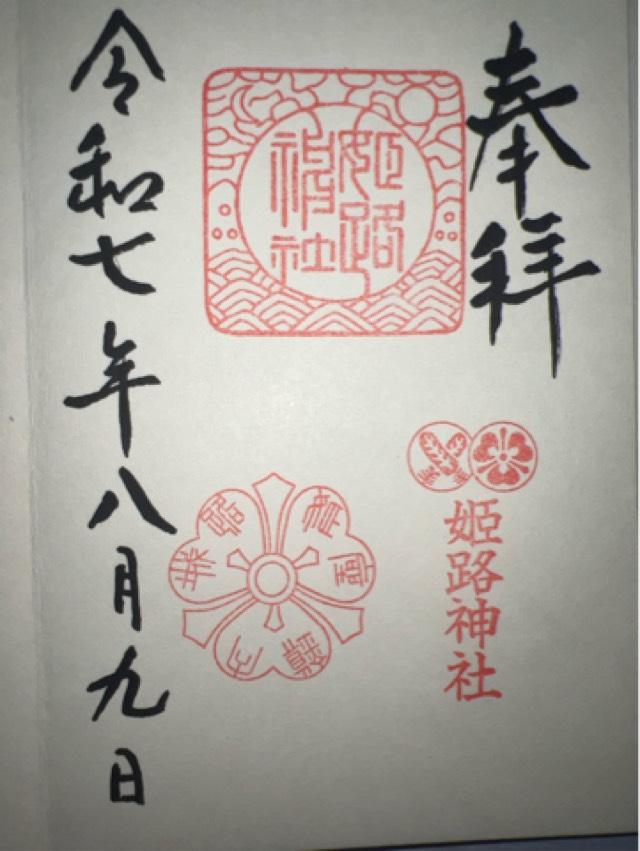 奉拝
姫路神社
姫路神社
令和七年八月九日